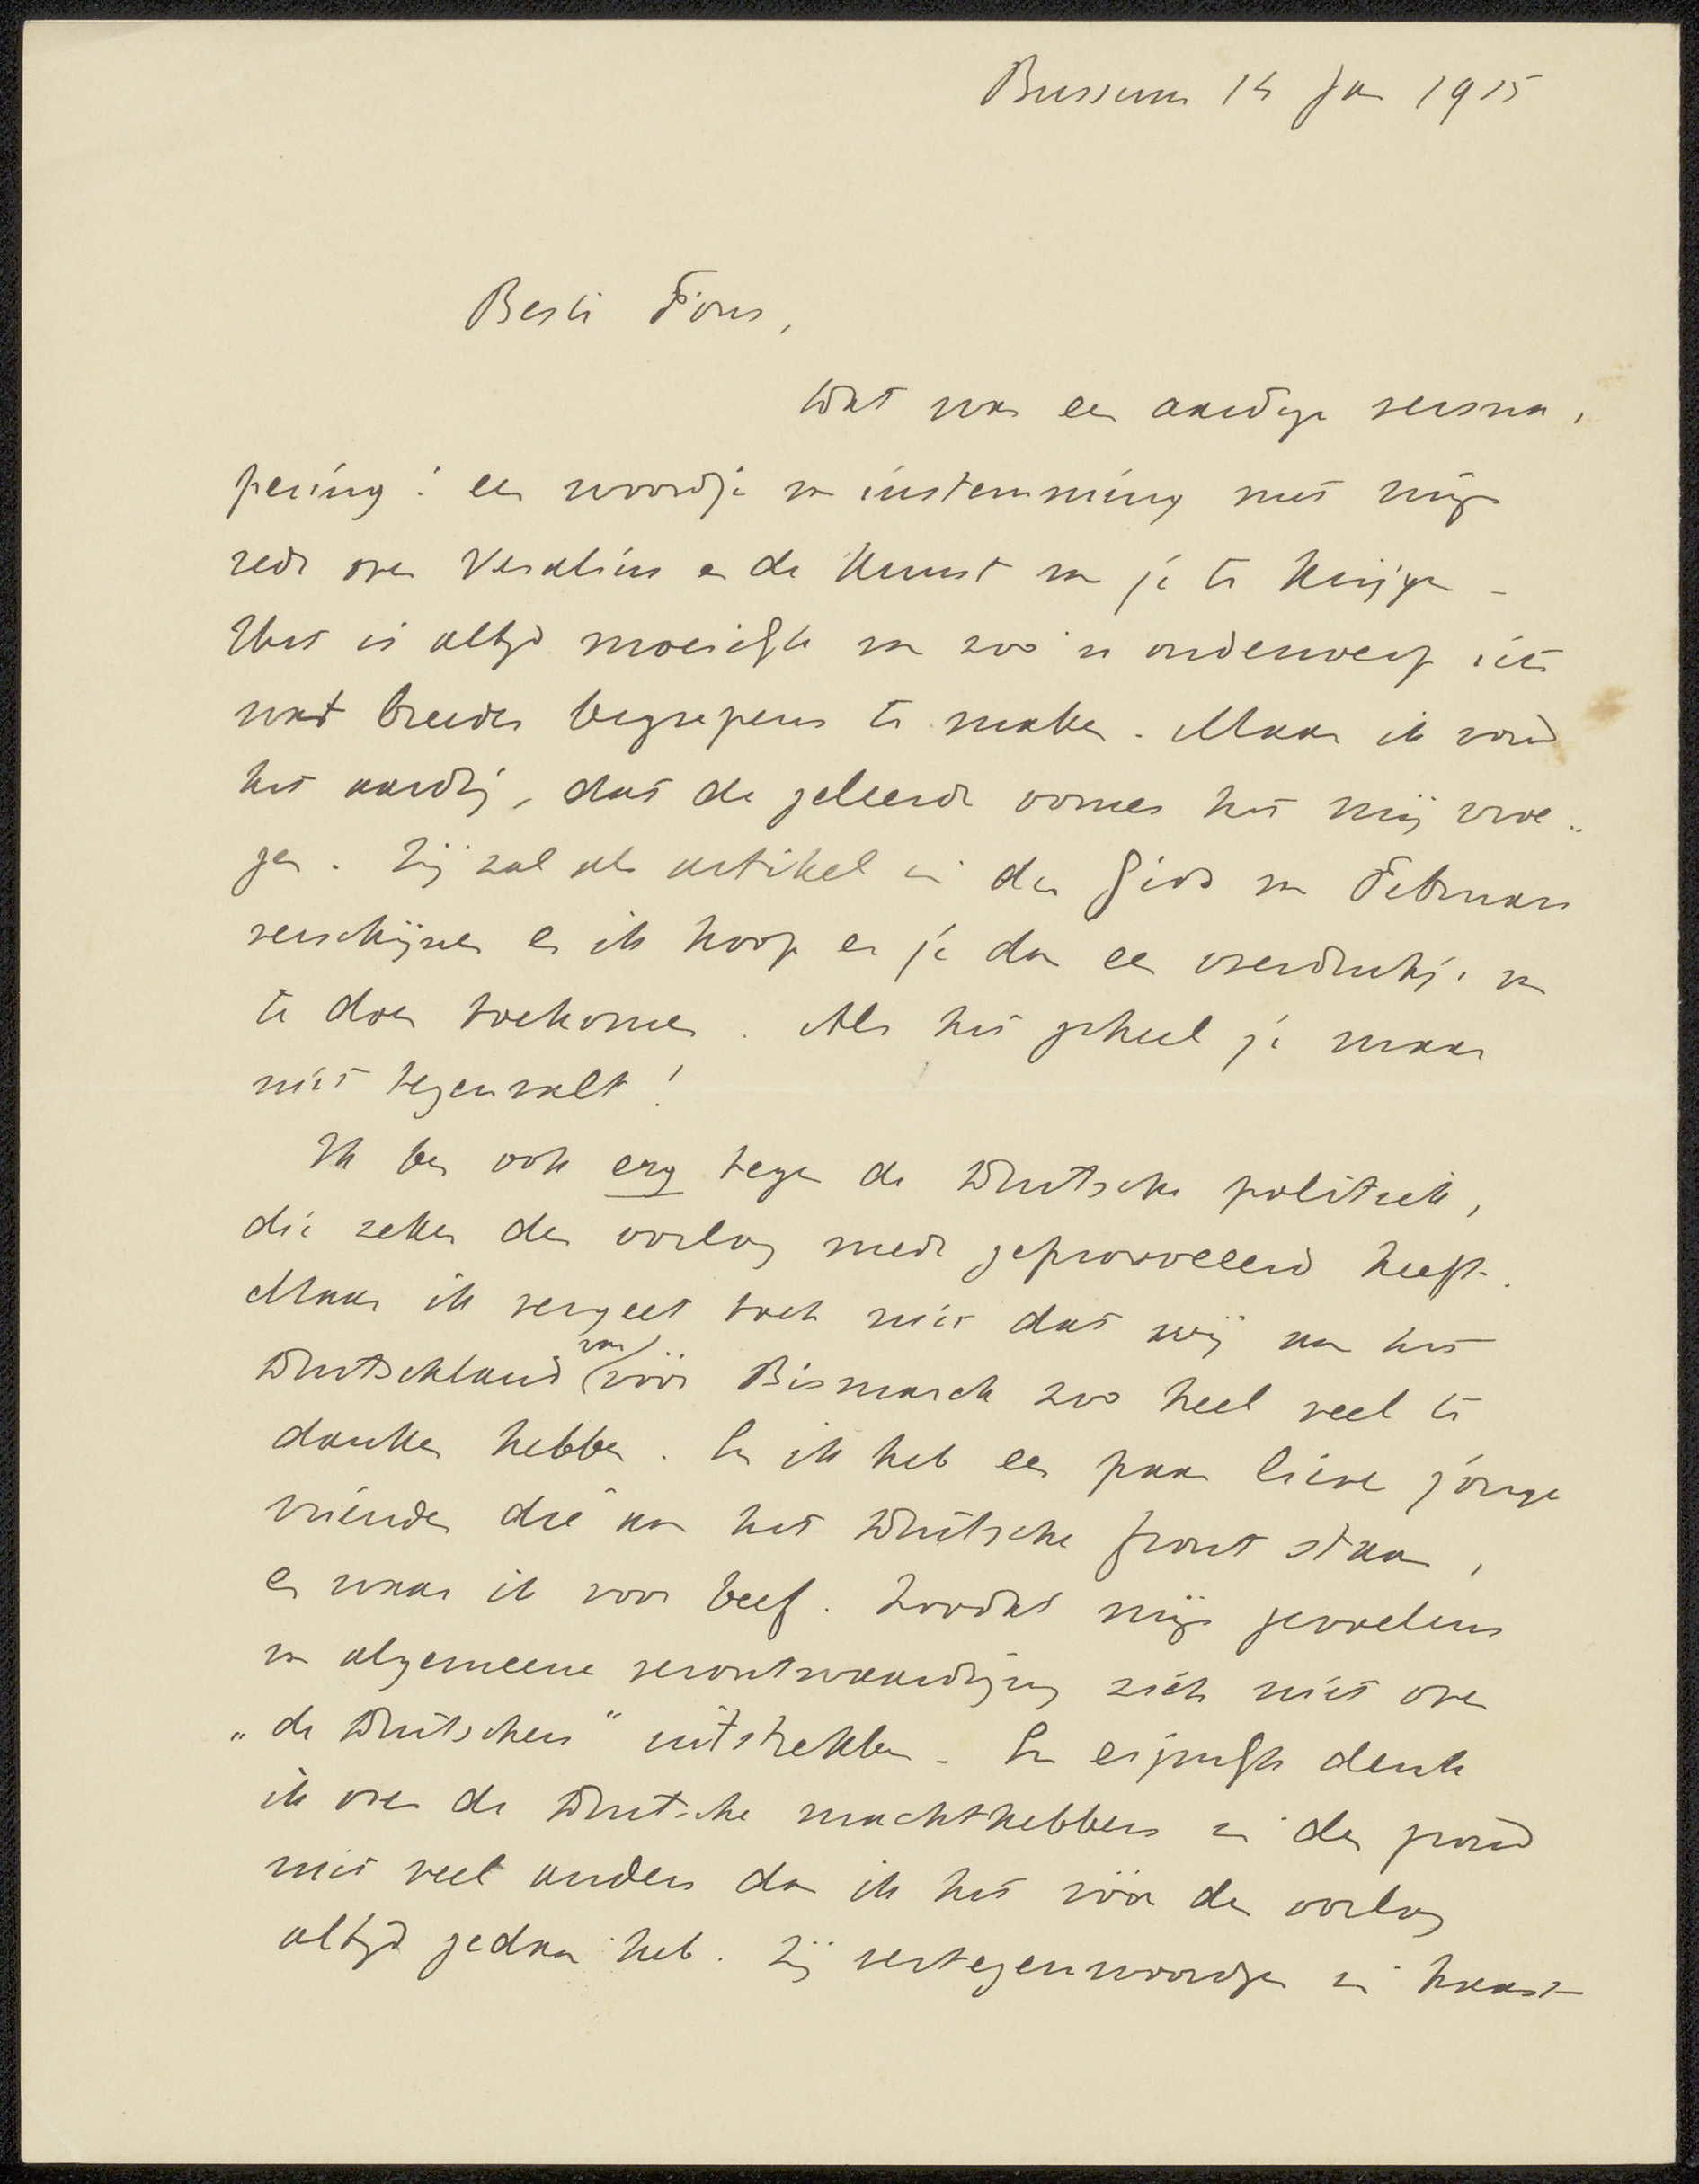 Bussum 14 Jan 1915
Beste Fons,
Wat was een aardige versna,
pering: een woordje van instemming met mijn
rede over Vesalius en de Kunst van je te krijgen –
Het is altijd moeielijk van zoo 'n onderwerp iets
wat breeder begrepens te maken. Maar ik vond
het aardig, dat de geleerde oomes het mij vroe„
gen. Zij zal als artikel in den Gids van Februari
verschijnen en ik hoop er je dan een overdrukje van
te doen toekomen. Als het geheel je maar
niet tegenvalt!
Ik ben ook erg tegen de Duitsche politiek,
die zeker den oorlog mede geprovoceerd heeft.
Maar ik vergeet toch niet dat wij aan het
Duitschland van vóór Bismarck zoo heel veel te
danken hebben. En ik heb een paar lieve jonge
vrienden die aan het Duitsche front staan,
en waar ik voor beef. Zoodat mijn gevoelens
van algemeene verontwaardiging zich niet over
„de Duitschers" uitstrekken – En eigenlijk denk
ik over de Duitsche machthebbers in den grond
niet veel anders dan ik het vóór den oorlog
altijd gedaan heb. Zij vertegenwoordigen in haast